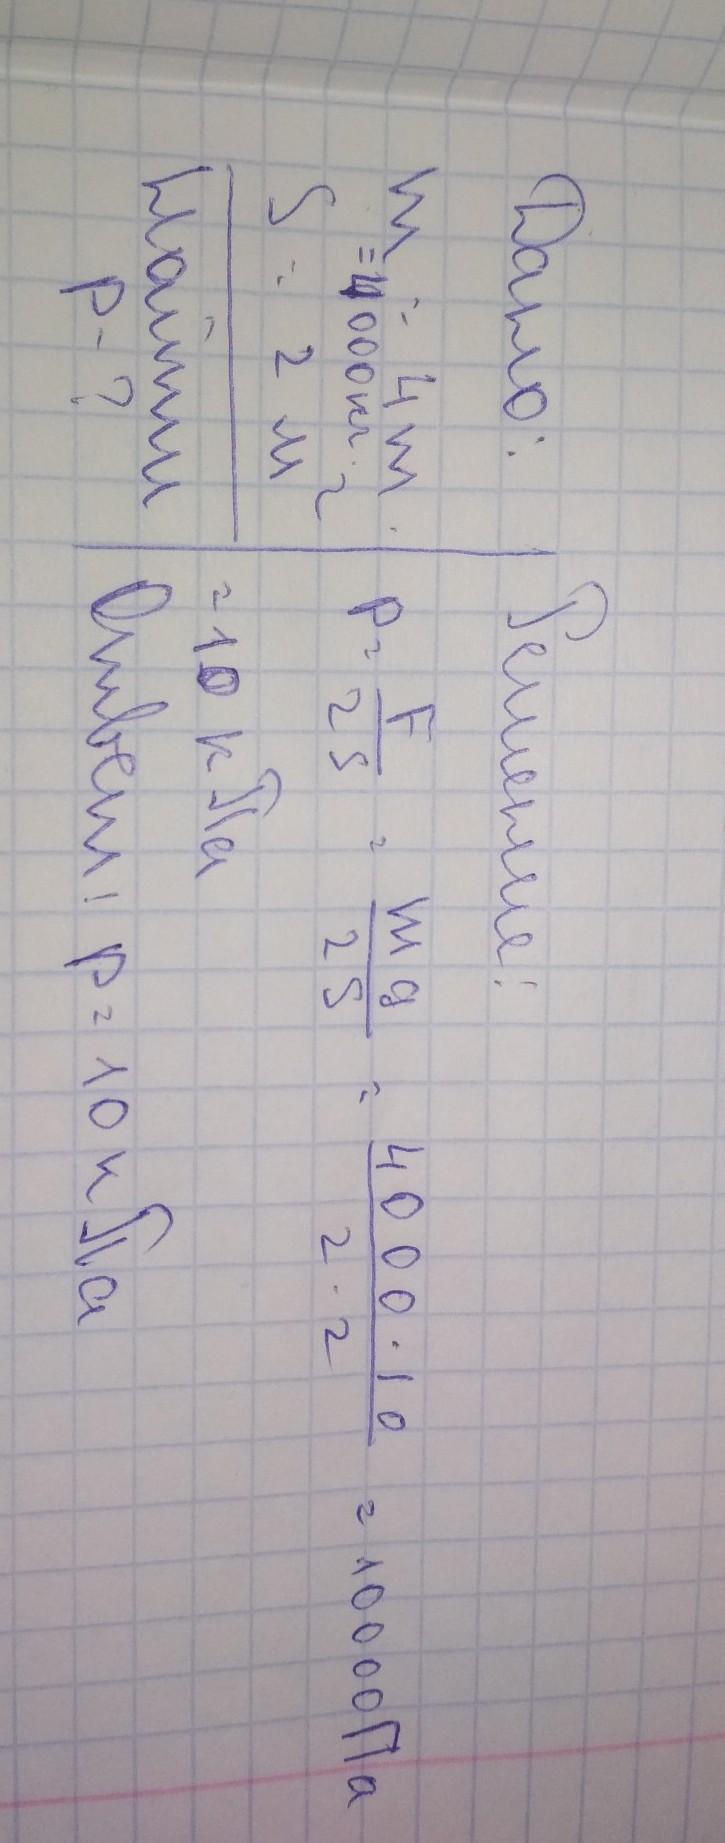 Дано:
m = 4т.
=4000кг.
S = 2 м²
Найти
p-?
Решение:
p = F/2S = mg/2S = 4000·10/2·2 = 10000Па
= 10 кПа
Ответ: p = 10 кПа